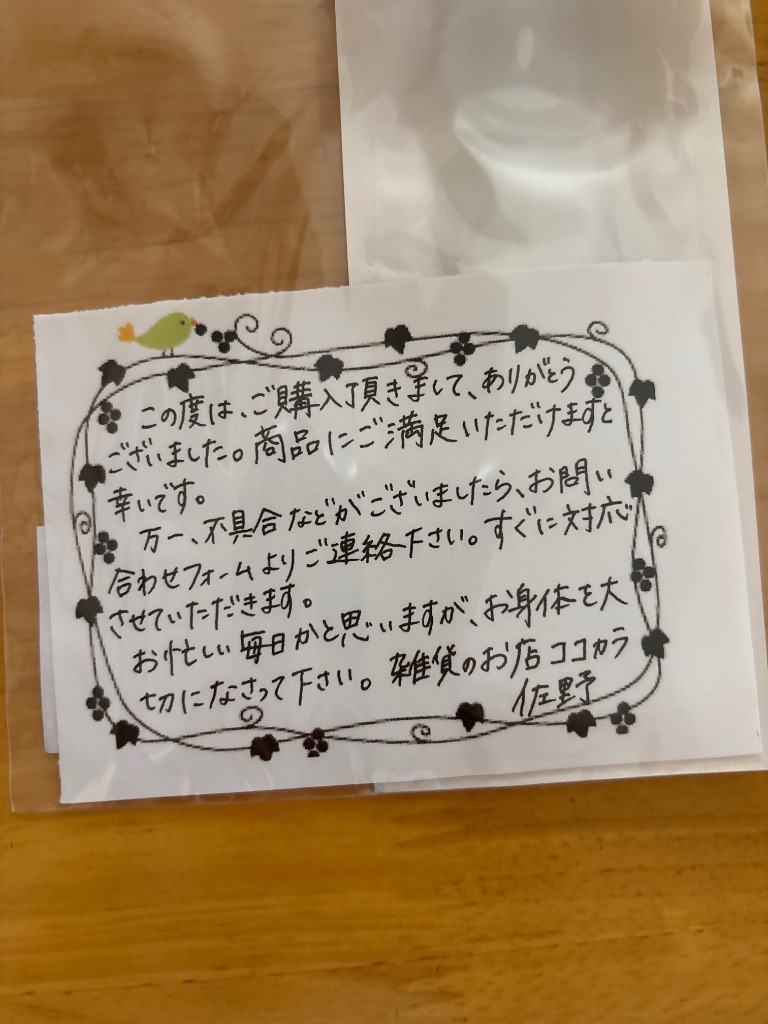 この度は、ご購入頂きまして、ありがとう
ございました。商品にご満足いただけますと
幸いです。
万一、不具合などがございましたら、お問い
合わせフォームよりご連絡下さい。すぐに対応
させていただきます。
お忙しい毎日かと思いますが、お身体を大
切になさって下さい。雑貨のお店ココカラ
佐野